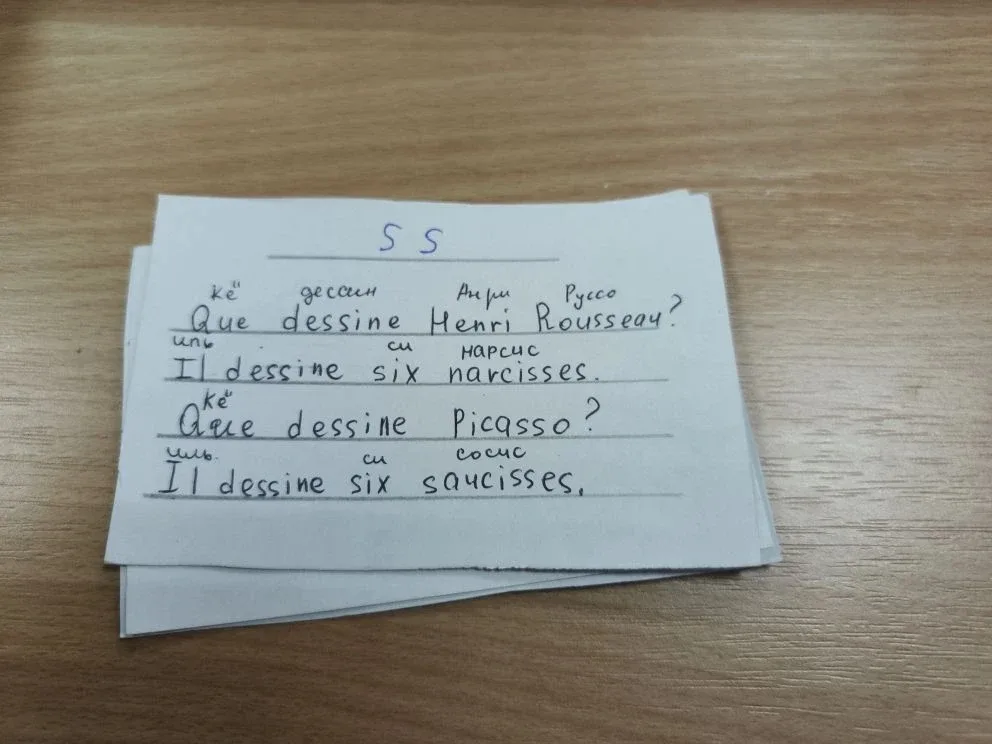 S S
кё дессин Анри Руссо
Que dessine Henri Rousseau?
иль си нарсис
Il dessine six narcisses.
кё
Que dessine Picasso?
иль. си сосис
Il dessine six saucisses.